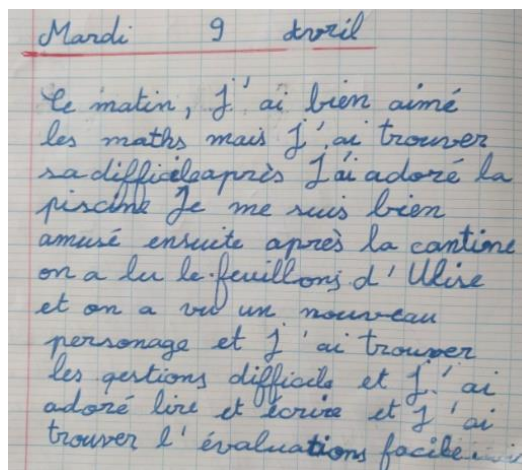 Mardi 9 Avril
Ce matin, J'ai bien aimé
les maths mais J'ai trouver
sa difficile après J'ai adoré la
piscine Je me suis bien
amusé ensuite après la cantine
on a lu le feuillons d'Ulise
et on a vu un nouveau
personage et J'ai trouver
les qestions difficile et J'ai
adoré lire et écrire et J'ai
trouver l'évaluations facile